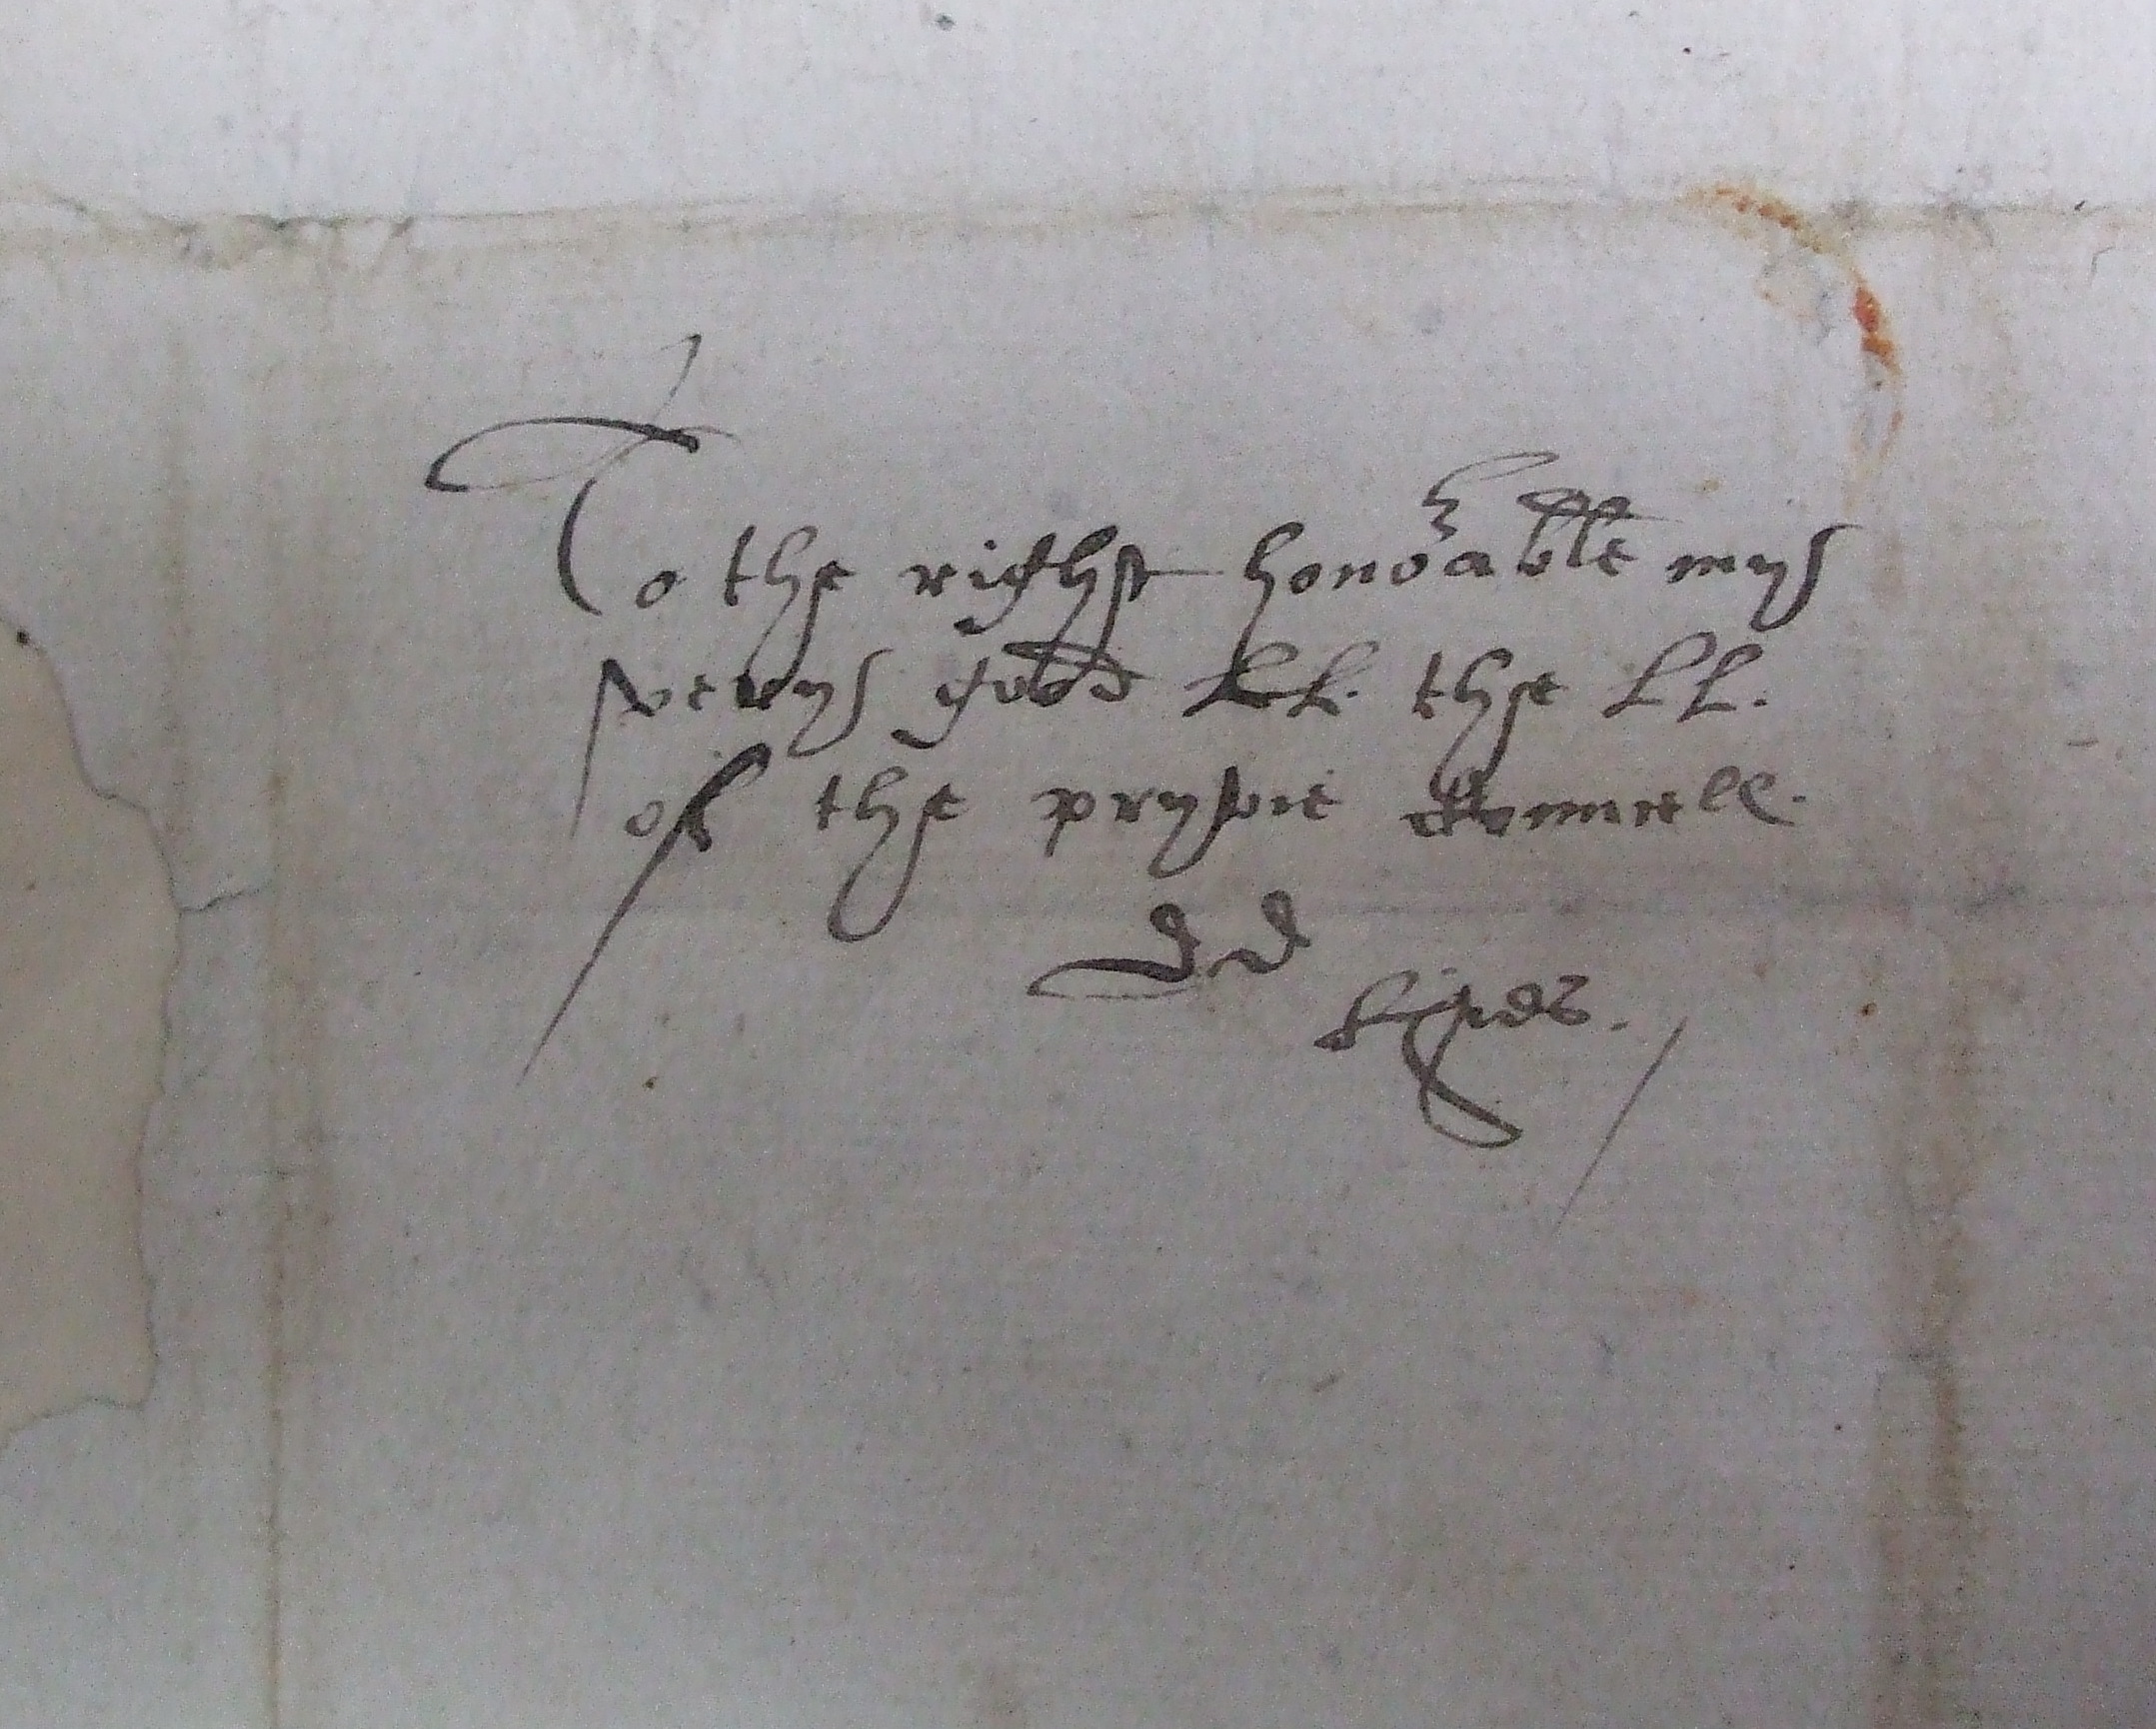 To the right hono^r^able my
very good LL. the LL.
of the pryvie Counsell.
dd